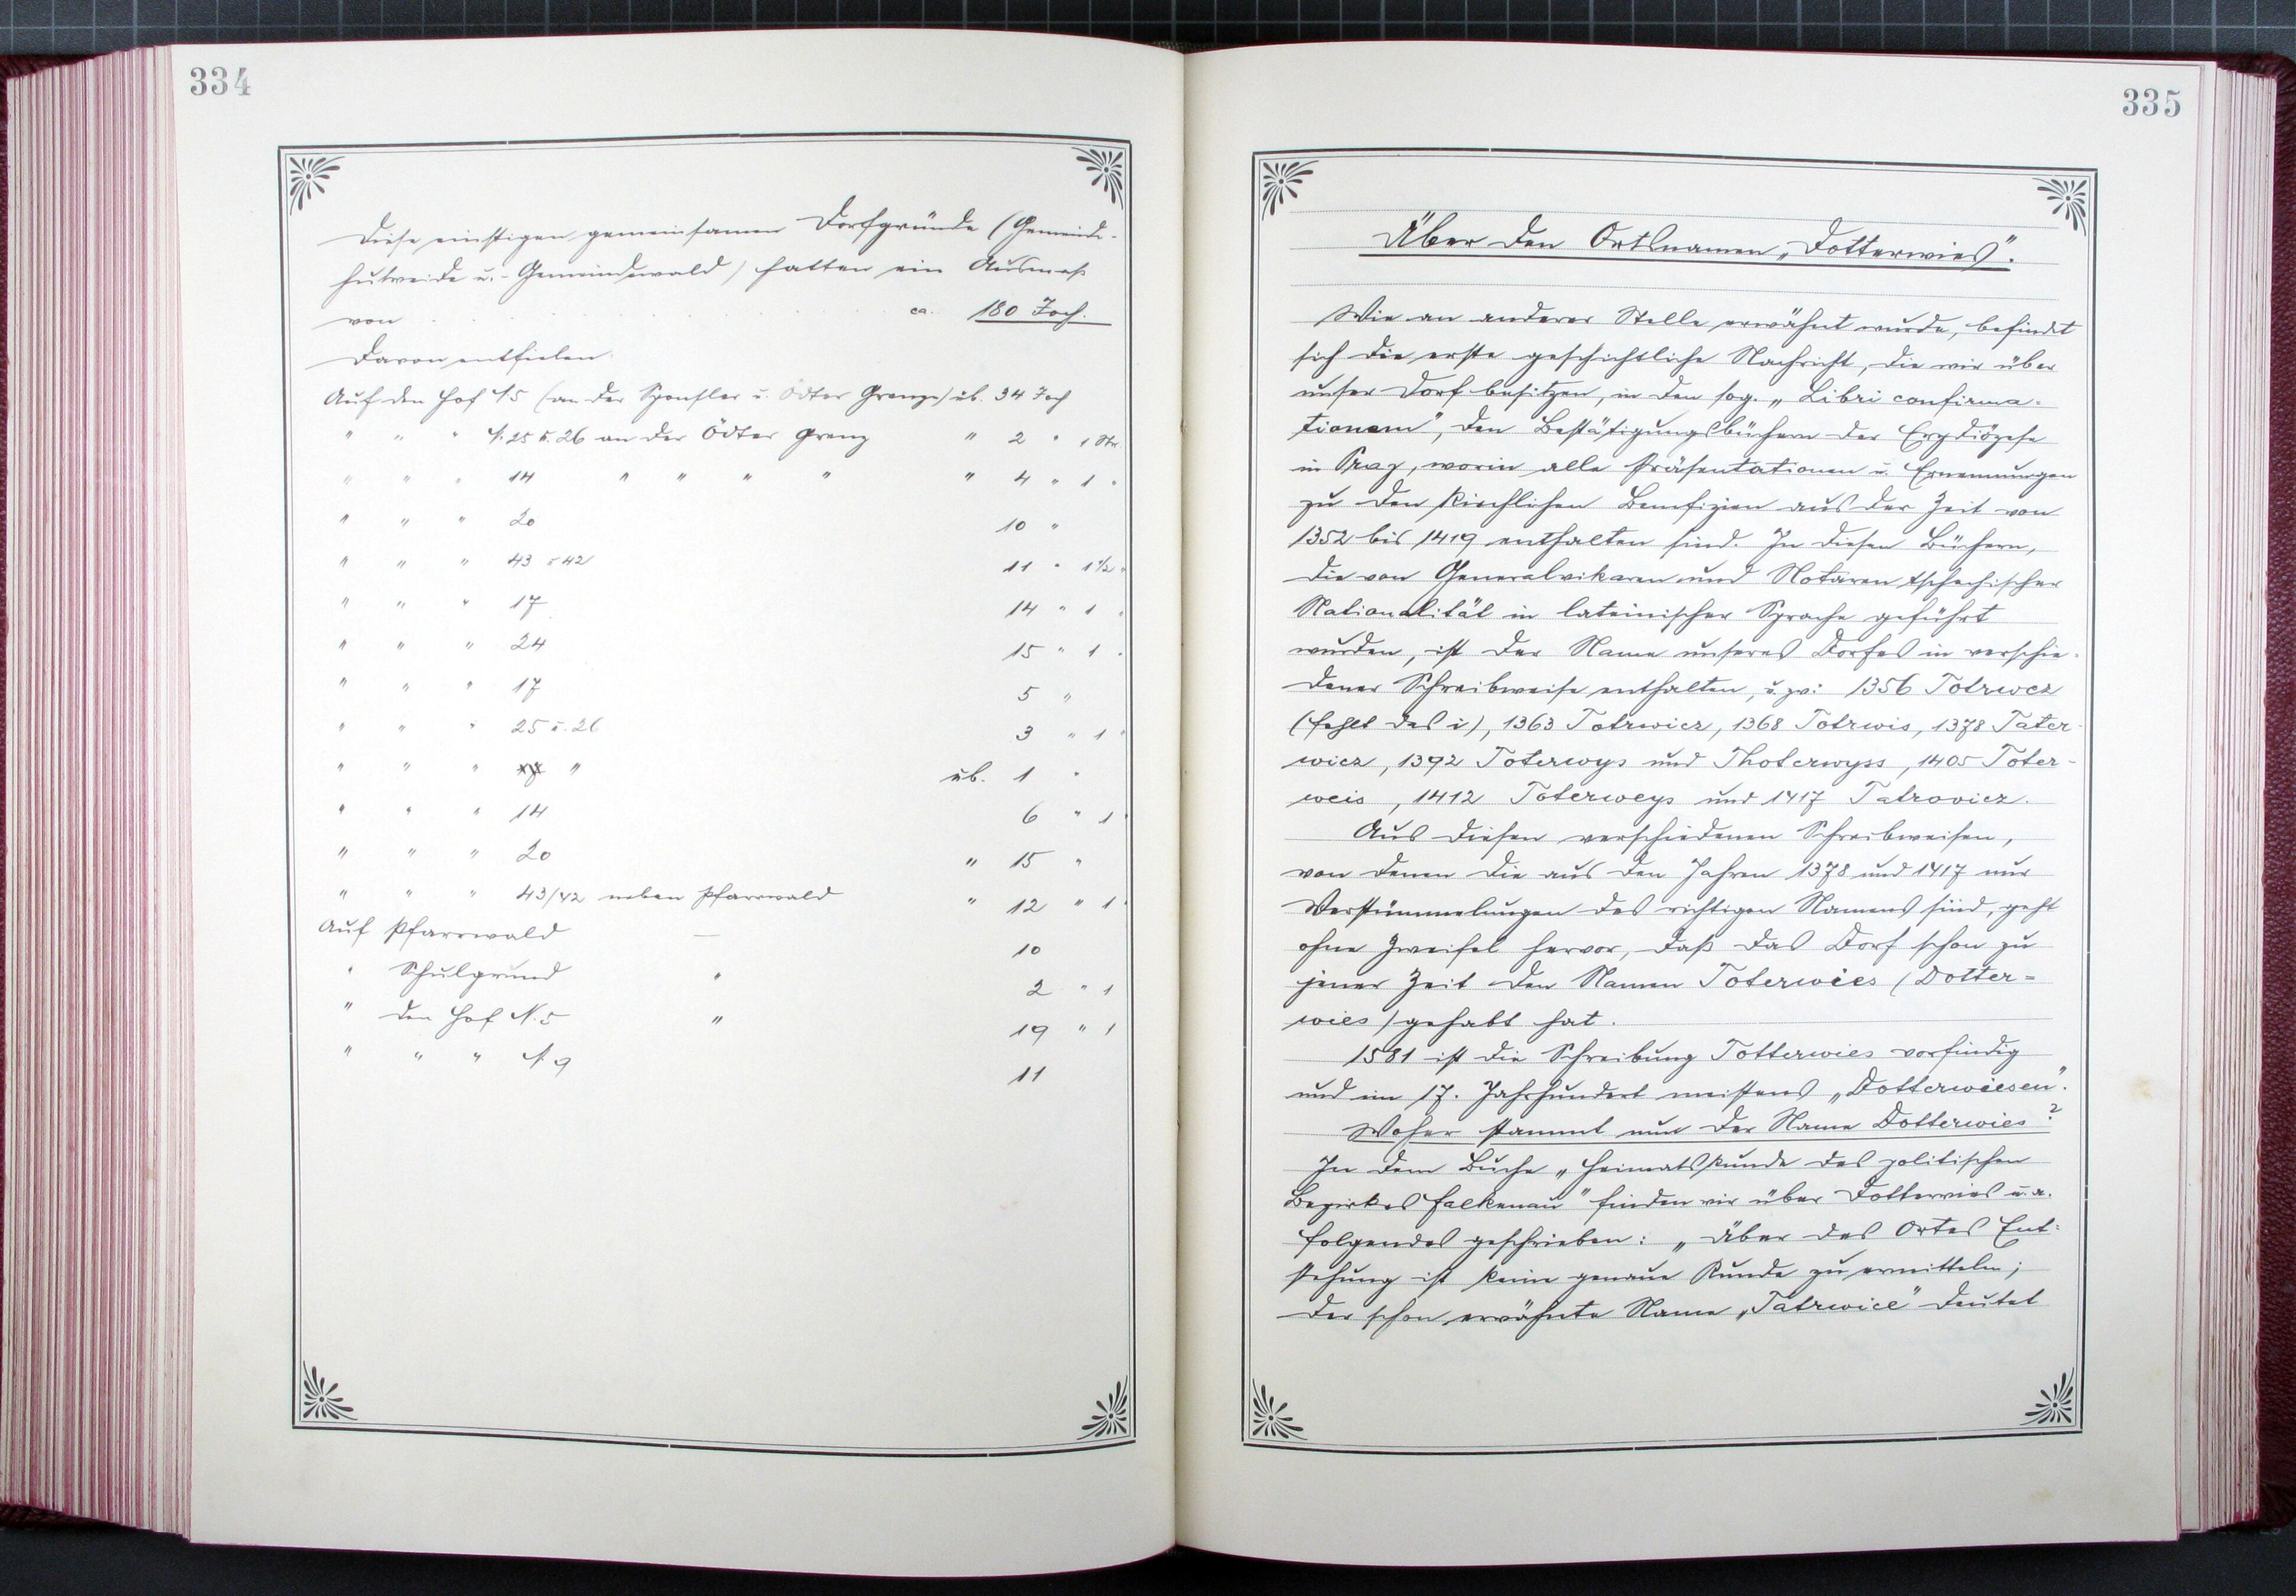 334
Diese einstigen gemeinsamen Dorfgründe (Gemeinde-
hutweide u. Gemeindewald) hatten ein Ausmaß
von . . . . . . . . . . ca. 180 Joch.
Davon entfielen:
Auf den Hof N. 5 (an der u. Ödter Grenze) üb. 34 Joch
" " " N. 25 u. 26 an der Ödter Grenz " 2 " 1 Str.
" " " 14 " " " " " 4 " 1 "
" " " 20 10 "
" " " 43 u 42 11 " 1 1/2 "
" " " 17 14 " 1 "
" " " 24 15 " 1 "
" " " 17 5 "
" " " 25 u. 26 3 " 1 "
" " " " üb. 1 "
" " " 14 6 " 1 "
" " " 20 " 15 "
" " " 43/42 neben Pfarrwald " 12 " 1 "
Auf Pfarrwald — 10
" Schulgrund " 2 " 1
" den Hof N. 5 " 19 " 1
" " " N. 9 11
335
Über den Ortsnamen „Dotterwies".
Wie an anderer Stelle erwähnt wurde, befindet
sich die erste geschichtliche Nachricht, die wir über
unser Dorf besitzen, in den sog. „Libri confirma-
tionem", den Bestätigungsbüchern der Erzdiözese
in Prag, worin alle Präsentationen u. Ernennungen
zu den kirchlichen Benefizien aus der Zeit von
1352 bis 1419 enthalten sind. In diesen Büchern,
die von Generalvikaren und Notaren tschechischer
Nationalität in lateinischer Sprache geführt
wurden, ist der Name unseres Dorfes in verschie-
dener Schreibweise enthalten, u. zw: 1356 Totrwcz
(fehlt das i), 1363 Totrwicz, 1368 Totrwis, 1378 Tater-
wicz, 1392 Toterwys und Thoterwyss, 1405 Toter-
weis, 1412 Toterweys und 1417 Tatrovicz.
Aus diesen verschiedenen Schreibweisen,
von denen die aus den Jahren 1378 und 1417 nur
Verstümmelungen des richtigen Namens sind, geht
ohne Zweifel hervor, daß das Dorf schon zu
jener Zeit den Namen Toterwies (Dotter=
wies) gehabt hat.
1581 ist die Schreibung Totterwies vorfindig
und im 17. Jahrhundert meistens „Dotterwiesen".
Woher stammt nun der Name Dotterwies?
In dem Buche „Heimatskunde des politischen
Bezirkes Falkenau" finden wir über Dotterwies u. a.
folgendes geschrieben: „Über des Ortes Ent=
stehung ist keine genaue Kunde zu ermitteln;
der schon erwähnte Name „Tatrwice" deutet